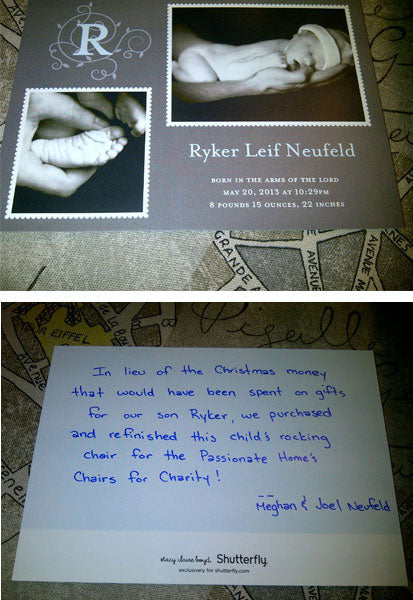 R
Ryker Leif Neufeld
BORN IN THE ARMS OF THE LORD
MAY 20, 2013 AT 10:29PM
8 POUNDS 15 OUNCES, 22 INCHES
GRANDE A
AVENUE
AVENUE M
Pigalle
R EIFFEL
In lieu of the Christmas money
that would have been spent on gifts
for our son Ryker, we purchased
and refinished this child's rocking
chair for the Passionate Home's
Chairs for Charity!
Meghan & Joel Neufeld
stacy claire boyd. Shutterfly.
exclusively for shutterfly.com